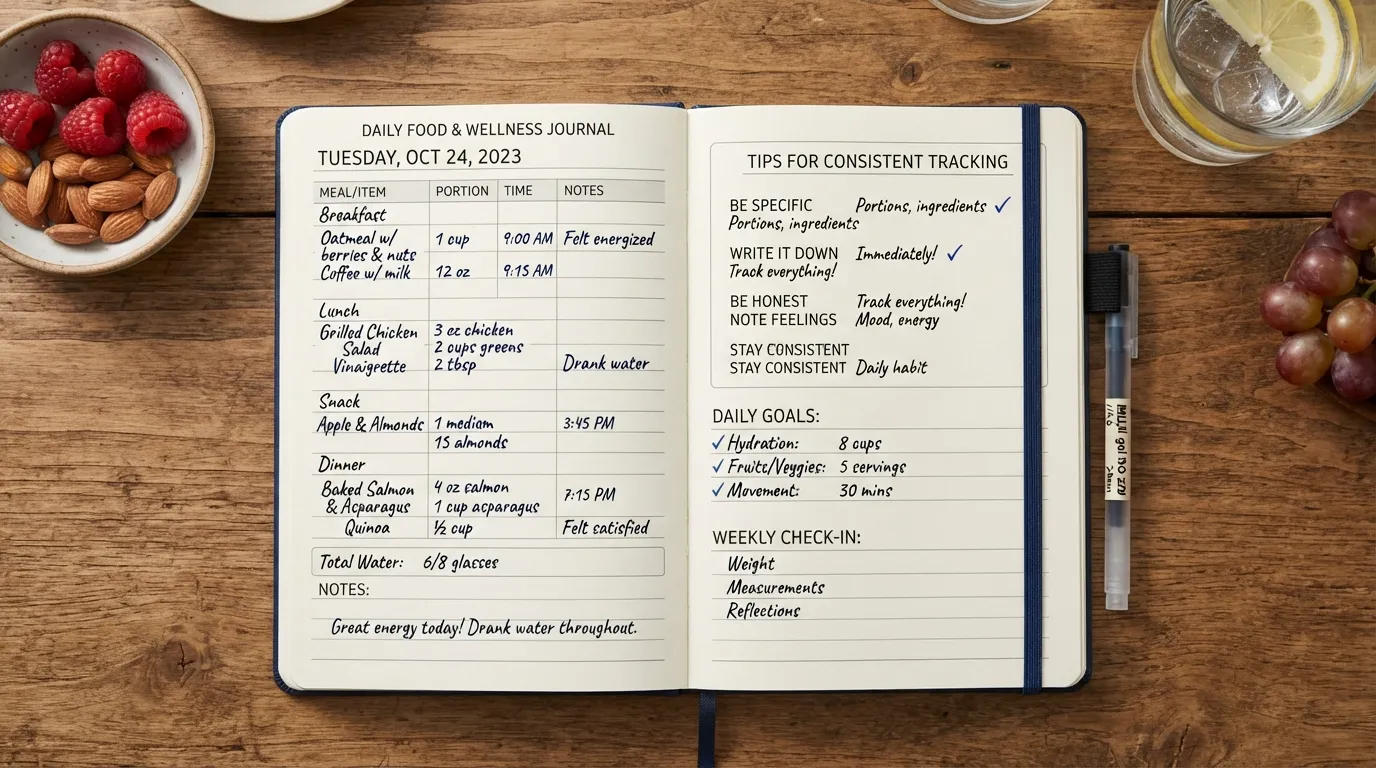 DAILY FOOD & WELLNESS JOURNAL
TUESDAY, OCT 24, 2023
MEAL/ITEM PORTION TIME NOTES
Breakfast
Oatmeal w/ 1 cup 9:00 AM Felt energized
berries & nuts
Coffee w/ milk 12 oz 9:15 AM
Lunch
Grilled Chicken 3 oz chicken
Salad 2 cups greens
Vinaigrette 2 tbsp Drank water
Snack
Apple & Almonds 1 medium 3:45 PM
15 almonds
Dinner
Baked Salmon 4 oz salmon 7:15 PM
& Asparagus 1 cup asparagus
Quinoa ½ cup Felt satisfied
Total Water: 6/8 glasses
NOTES:
Great energy today! Drank water throughout.
TIPS FOR CONSISTENT TRACKING
BE SPECIFIC Portions, ingredients ✓
Portions, ingredients
WRITE IT DOWN Immediately! ✓
Track everything!
BE HONEST Track everything!
NOTE FEELINGS Mood, energy
STAY CONSISTENT
STAY CONSISTENT Daily habit
DAILY GOALS:
✓ Hydration: 8 cups
✓ Fruits/Veggies: 5 servings
✓ Movement: 30 mins
WEEKLY CHECK-IN:
Weight
Measurements
Reflections